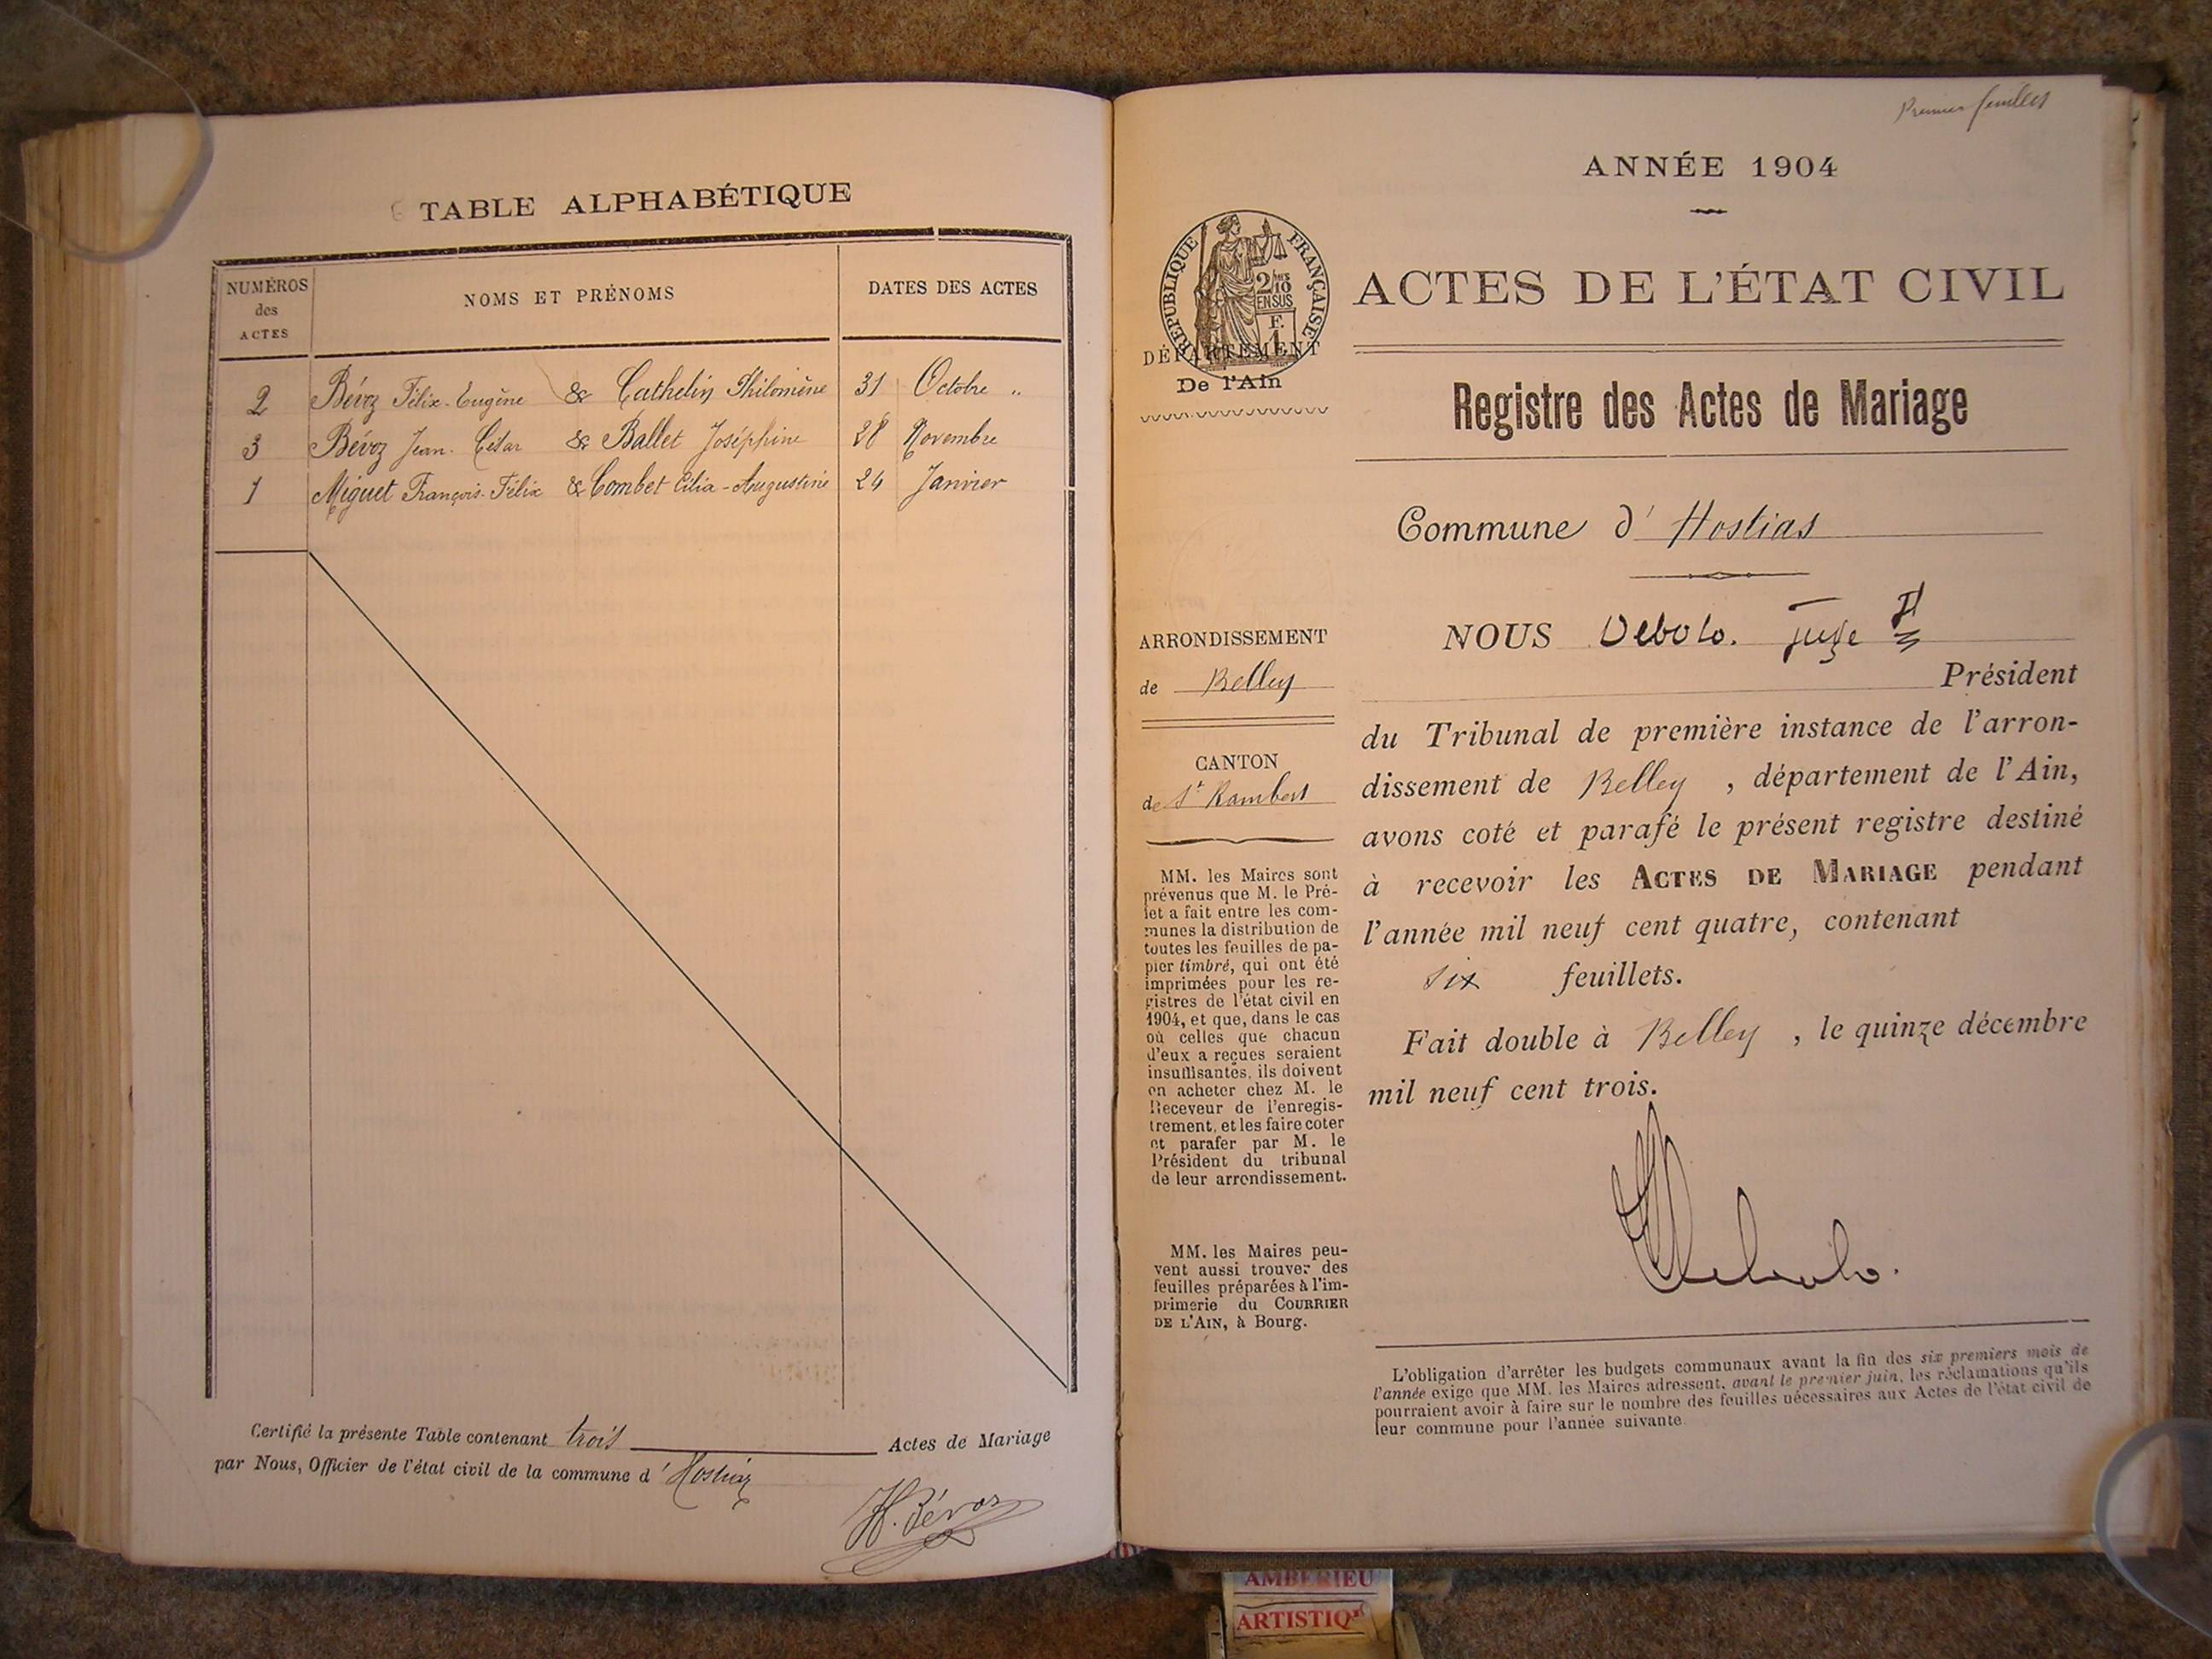 TABLE ALPHABÉTIQUE
NUMÉROS
des
ACTES
NOMS ET PRÉNOMS
DATES DES ACTES
2 Bévoz Félix-Eugène & Cathelin Philomène 31 Octobre "
3 Bévoz Jean-César & Ballet Joséphine 28 Novembre
1 Miguet François-Félix & Combet Célia-Augustine 24 Janvier
Certifié la présente Table contenant trois Actes de Mariage
par Nous, Officier de l'état civil de la commune d'Hostiaz
H. Bévoz
Premier feuillet
ANNÉE 1904
RÉPUBLIQUE FRANÇAISE
2/10
EN SUS
F.
1
DÉPARTEMENT
De l'Ain
ACTES DE L'ÉTAT CIVIL
Registre des Actes de Mariage
Commune d'Hostias
ARRONDISSEMENT
de Belley
CANTON
de St Rambert
MM. les Maires sont
prévenus que M. le Pré-
fet a fait entre les com-
munes la distribution de
toutes les feuilles de pa-
pier timbré, qui ont été
imprimées pour les re-
gistres de l'état civil en
1904, et que, dans le cas
où celles que chacun
d'eux a reçues seraient
insuffisantes, ils doivent
en acheter chez M. le
Receveur de l'enregis-
trement, et les faire coter
et parafer par M. le
Président du tribunal
de leur arrondissement.
MM. les Maires peu-
vent aussi trouver des
feuilles préparées à l'im-
primerie du COURRIER
DE L'AIN, à Bourg.
NOUS Debolo. juge
Président
du Tribunal de première instance de l'arron-
dissement de Belley, département de l'Ain,
avons coté et parafé le présent registre destiné
à recevoir les ACTES DE MARIAGE pendant
l'année mil neuf cent quatre, contenant
six feuillets.
Fait double à Belley, le quinze décembre
mil neuf cent trois.
Debolo.
L'obligation d'arrêter les budgets communaux avant la fin des six premiers mois de
l'année exige que MM. les Maires adressent, avant le premier juin, les réclamations qu'ils
pourraient avoir à faire sur le nombre des feuilles nécessaires aux Actes de l'état civil de
leur commune pour l'année suivante
AMBERIEU
ARTISTIQ